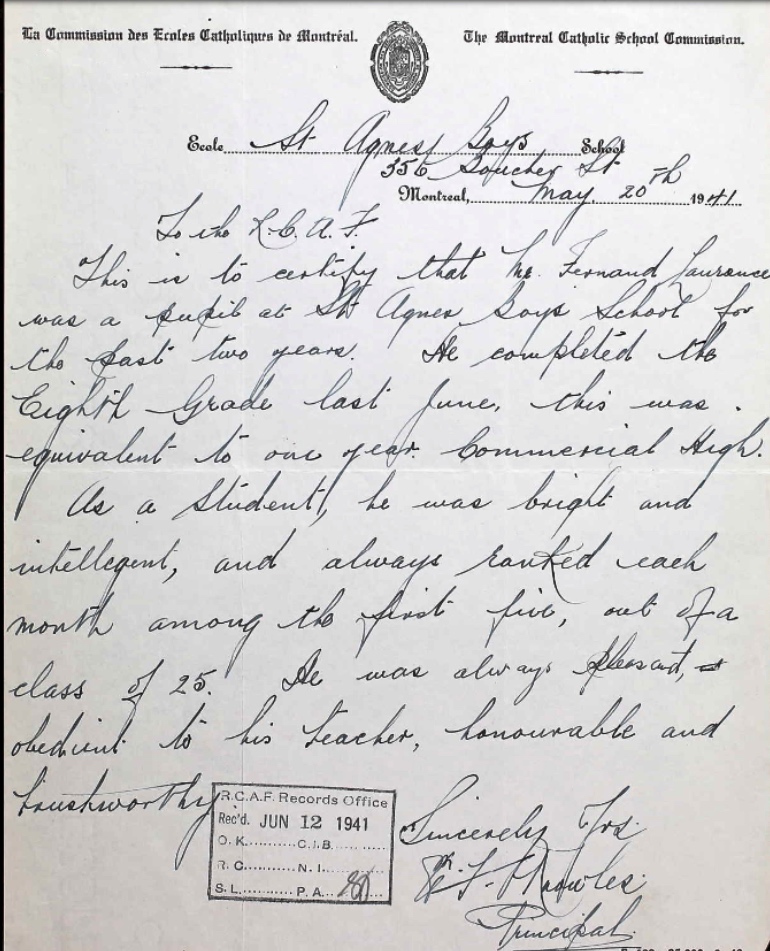 La Commission des Ecoles Catholiques de Montréal.
The Montreal Catholic School Commission.
Ecole St Agnes Boys School
356 Boucher St
Montreal, May. 20th 1941
To the R.C.A.F.
This is to certify that Mr. Fernand Laurence
was a pupil at St Agnes Boys School for
the past two years. He completed the
Eighth Grade last June, this was
equivalent to one year Commercial High.
As a Student, he was bright and
intellegent, and always ranked each
month among the first five, out of a
class of 25. He was always pleasant,
obedient to his teacher, honourable and
trustworthy
Sincerely Yrs.
Knowles
Principal.
R.C.A.F. Records Office
Rec'd. JUN 12 1941
O.K.......... C.I.B..........
R.C.......... N.I..........
S.L.......... P.A.